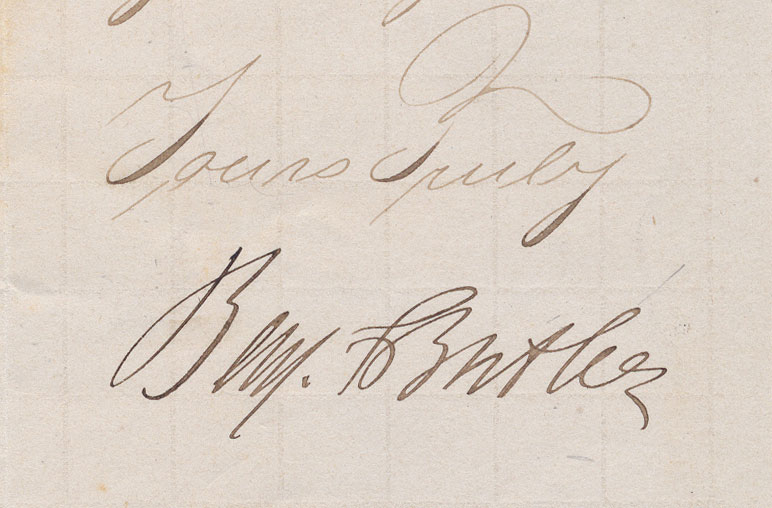 Yours Truly
Benj. F Butler